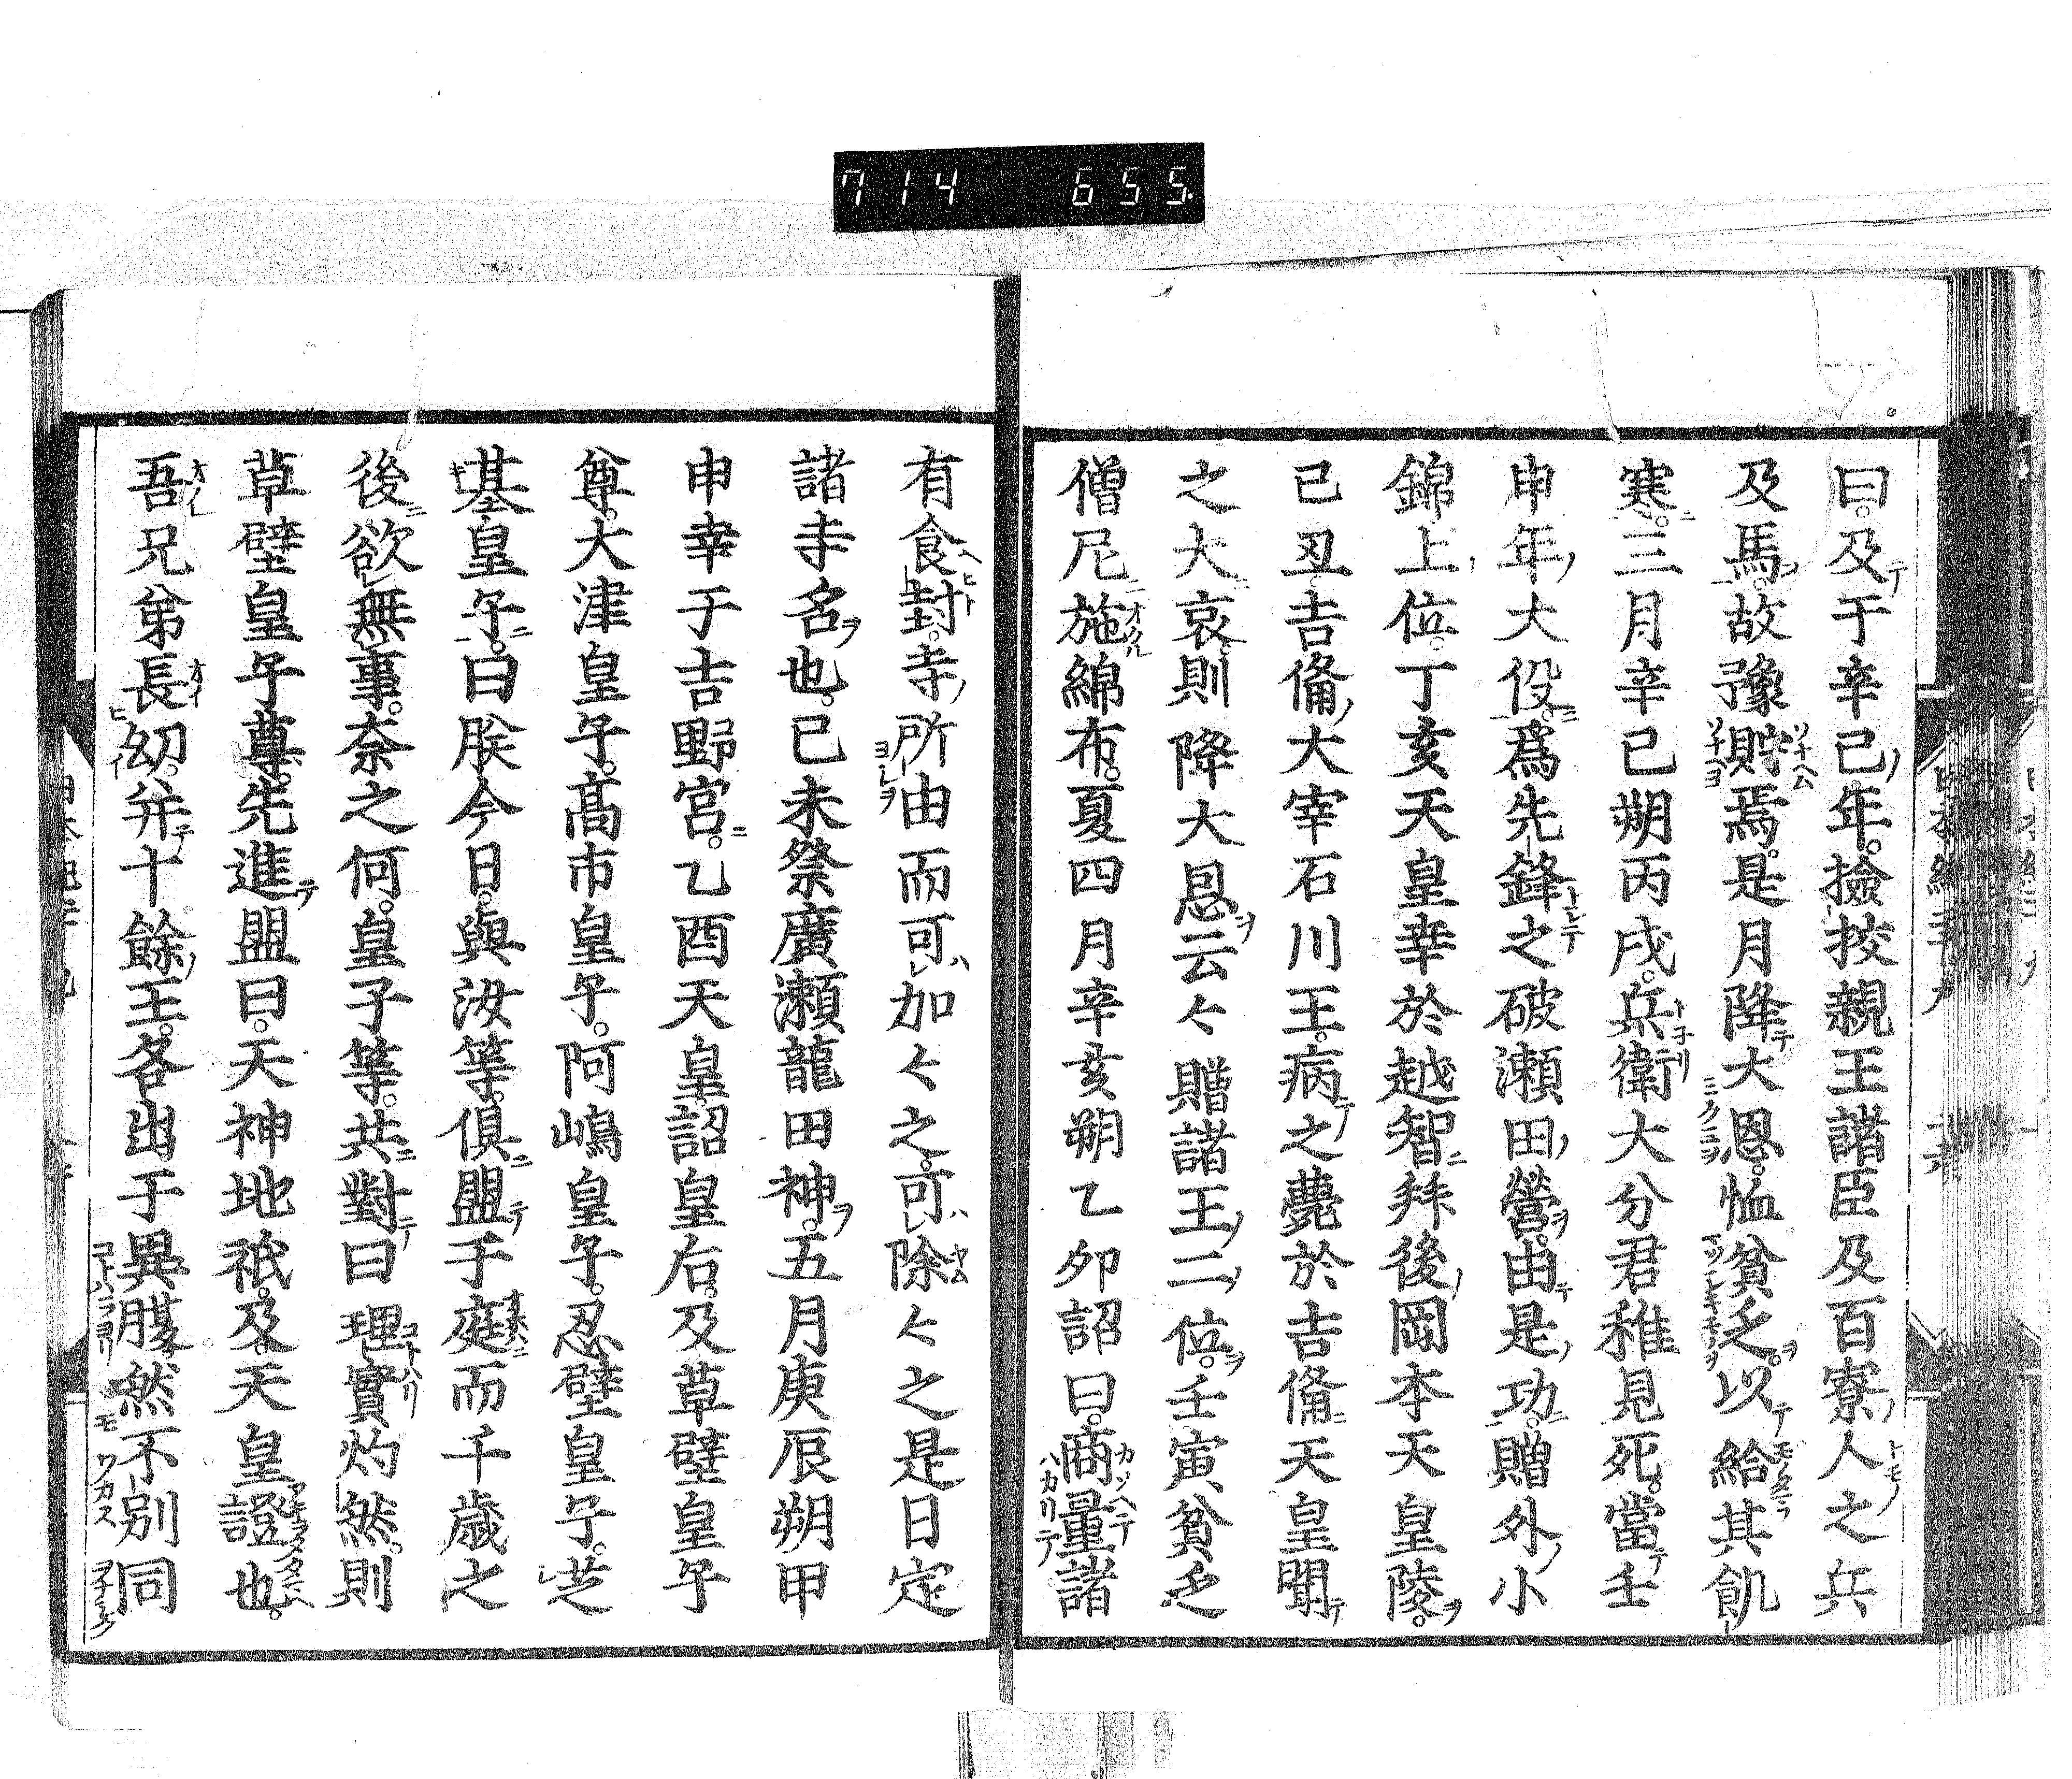 714 655
曰。及于辛巳年。撿挍親王諸臣及百寮人之兵
及馬。故豫貯焉。是月降大恩。恤貧乏。以給其飢
寒。三月辛巳朔丙戌。兵衛大分君稚見死。當壬
申年大役。爲先鋒之破瀬田營。由是功。贈外小
錦上位。丁亥天皇幸於越智拜後岡本天皇陵。
己丑吉備大宰石川王。病之薨於吉備天皇聞
之大哀。則降大恩云々贈諸王二位。壬寅貧乏
僧尼施綿布。夏四月辛亥朔乙卯詔曰。商量諸
有食封。寺所由而可加々之。可除々之是日定
諸寺名也。己未祭廣瀬龍田神。五月庚辰朔甲
申幸于吉野宮。乙酉天皇詔皇后。及草壁皇子
尊。大津皇子。高市皇子。阿嶋皇子。忍壁皇子。芝
基皇子。曰朕今日。與汝等。俱盟于庭而千歳之
後欲無事。奈之何。皇子等。共對曰理實灼然。則
草壁皇子尊。先進盟曰。天神地祇。及天皇證也。
吾兄弟長幼并十餘王。各出于異腹。然不別同